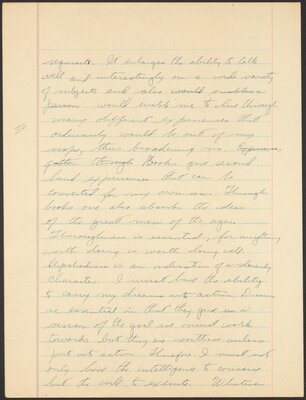 requisite. It enlarges the ability to talk
well and interestingly on a wide variety
of subjects and also would enable a
person would enable me to live through
many different experiences that
ordinarily would be out of my
scope, thus broadening me. Experiences
gotten through Books give second
hand experiences that can be
converted for my own use. Through
books one also absorbs the ideas
of the great men of the ages.
Thoroughness is essential, for anything
worth doing is worth doing well.
Slipshodness is an indication of a slovenly
character. I must have the ability
to carry my dreams into action. Dreams
are essential in that they give us a
vision of the goal we must work
towards but they are worthless unless
put into action. Therefore I must not
only have the intelligence to conceive
but the will to execute. Whatever